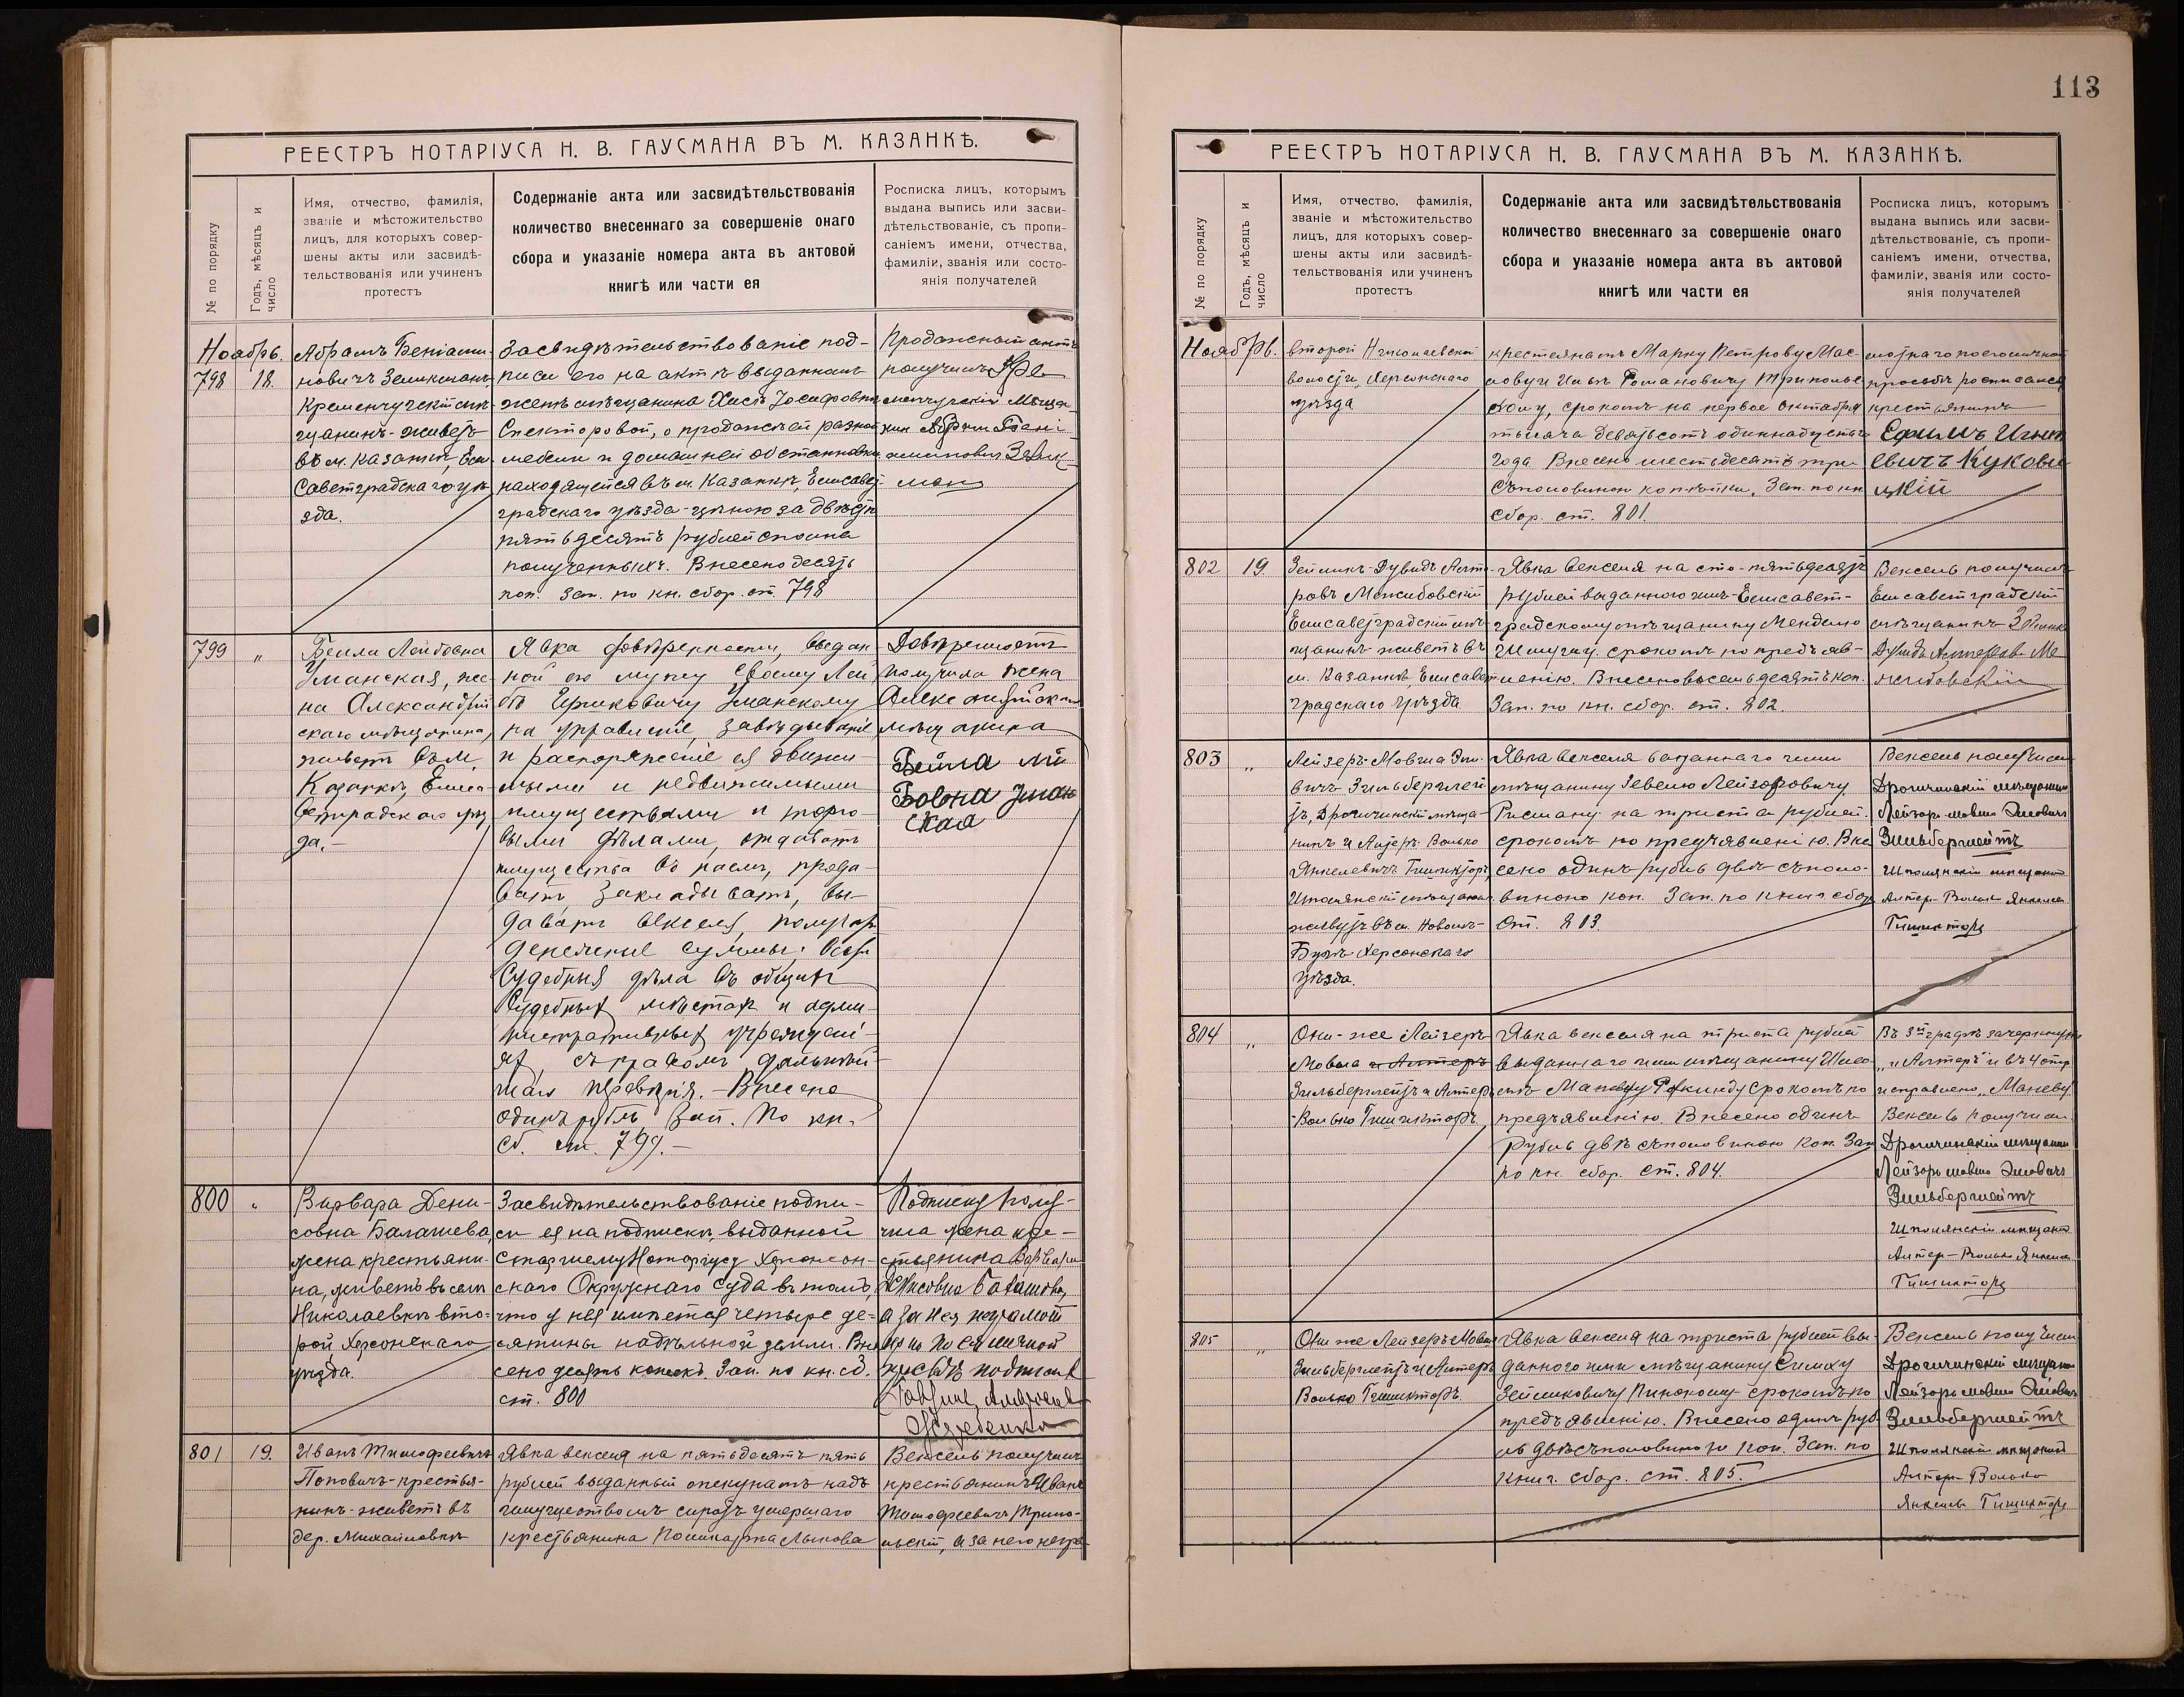 РЕЕСТРЪ НОТАРІУСА Н. В. ГАУСМАНА ВЪ М. КАЗАНКѢ.
№ по порядку
Годъ, мѣсяцъ и
число
Имя, отчество, фамилія,
званіе и мѣстожительство
лицъ, для которыхъ совер-
шены акты или засвидѣ-
тельствованія или учиненъ
протестъ
Содержаніе акта или засвидѣтельствованія
количество внесеннаго за совершеніе онаго
сбора и указаніе номера акта въ актовой
книгѣ или части ея
Росписка лицъ, которымъ
выдана выпись или засви-
дѣтельствованіе, съ пропи-
саніемъ имени, отчества,
фамиліи, званія или состо-
янія получателей
Ноябрь.
798 18.
Абрамъ Беніами-
новичъ Зеликманъ,
Кременчугскій мѣ-
щанинъ - живетъ
въ м. Казанкѣ, Ели-
саветградскаго уѣ-
зда.
Засвидѣтельствованіе под-
писи его на актѣ выданномъ
женѣ мѣщанина Хасѣ Іосифовнѣ
Спекторовой, о продажѣ ей разной
мебели и домашней обстановки
находящейся въ м. Казанкѣ, Елисавет-
градскаго уѣзда - цѣною за двѣсти
пятьдесятъ рублей сполна
полученныхъ. Внесено десять
коп. Зап. по кн. сбор. ст. 798
получилъ Кре-
менчугскій Мѣща-
нинъ Абрам Бені-
аминович Зелик-
ман
799 "
Бейла Лейбовна
Уманская, же-
на Александрій-
скаго мѣщанина,
живетъ въ м.
Казанкѣ, Елиса-
ветградскаго уѣз-
да. -
Явка довѣренности, выдан-
ной ею мужу своему Лей-
бѣ Ериковичу Уманскому
на управленіе, завѣдываніе
и распоряженіе ея движи-
мыми и недвижимыми
имуществами и торго-
выми дѣлами, отдавать
имущества въ наемъ, прода-
вать, закладывать, вы-
давать векселя, получать
денежныя суммы; вести
судебныя дѣла въ общихъ
судебныхъ мѣстахъ и адми-
нистративныхъ учрежден-
яхъ, съ правомъ дальнѣй-
шаго передовѣрія. - Внесено
одинъ рубль Зап. По кн.
сб. ст. 799. -
Довѣренность
получила жена
мѣщанина
Бейла Лей
Бовна Уман
ская
800 "
Варвара Дени-
совна Балашева,
жена крестьяни-
на, живетъ въ селѣ
Николаевкѣ вто-
рой Херсонскаго
уѣзда.
Засвидѣтельствованіе подпи-
си ея на подпискѣ, выданной
Старшему Нотаріусу Херсон-
скаго Окружнаго Суда въ томъ,
что у нея имѣется четыре де-
сятины надѣльной земли. Вне
сено десять копѣекъ. Зап. по кн. сб.
ст. 800
Подписку полу-
чила жена кре-
стьянина Варвара
Денисовна Балашова,
а за нея неграмот
ную по ея личной
801 19.
Иванъ Тимофеевичъ
Поповичъ - крестья-
нинъ - живетъ въ
дер. Михайловкѣ
Явка векселя на пятьдесятъ пять
рублей выданный опекунамъ надъ
имуществомъ сиротъ умершаго
крестьянина Поликарпа Лыкова
Вексель получилъ
крестьянинъ Иванъ
Тимофеевичъ Трипо-
льскій, а за него негра-
113
РЕЕСТРЪ НОТАРІУСА Н. В. ГАУСМАНА ВЪ М. КАЗАНКѢ.
№ по порядку
Годъ, мѣсяцъ и
число
Имя, отчество, фамилія,
званіе и мѣстожительство
лицъ, для которыхъ совер-
шены акты или засвидѣ-
тельствованія или учиненъ
протестъ
Содержаніе акта или засвидѣтельствованія
количество внесеннаго за совершеніе онаго
сбора и указаніе номера акта въ актовой
книгѣ или части ея
Росписка лицъ, которымъ
выдана выпись или засви-
дѣтельствованіе, съ пропи-
саніемъ имени, отчества,
фамиліи, званія или состо-
янія получателей
Ноябрь.
второй Николаевской
волости, Херсонскаго
уѣзда
крестьянамъ Марку Петрову Мас-
лову и Ильѣ Романовичу Триполь-
скому, срокомъ на первое Октября
тысяча девятьсотъ одиннадцатаго
года. Внесено шестьдесятъ три
съ половиною копѣйки. Зап. по кн.
сбор. ст. 801.
мотнаго по его личной
просьбѣ росписался
крестьянинъ
Ефимъ Игнат
евичъ Кукови
цкій
802 19.
Зейликъ-Дувидъ Алте-
ровъ Межибовскій
Елисаветградскій мѣ-
щанинъ живетъ въ
м. Казанкѣ, Елисавет-
градскаго уѣзда
Явка векселя на сто-пятьдесятъ
рублей выданнаго имъ Елисавет-
градскому мѣщанину Менделю
срокомъ по предъяв-
ленію. Внесено восемьдесятъ коп.
Зап. по кн. сбор. ст. 802.
Вексель получилъ
Елисаветградскій
мѣщанинъ Зейликъ
Дувидъ Алтеровъ Ме
жибовскій
803 "
Лейзеръ-Мовша Эли-
вичъ Зильберглей
тъ, Дрогичинскій мѣща-
нинъ и Алтеръ-Волько
Янкелевичъ Тишикторъ
Шполянскій мѣщанинъ
живутъ въ м. Новомъ-
Бугѣ Херсонскаго
уѣзда.
Явка векселя выданнаго ими
мѣщанину Зевелю Лейзоровичу
на триста рублей.
срокомъ по предъявленію. Вне
сено одинъ рубль двѣ съ поло-
виною коп. Зап. по книг. сбор.
ст. 803.
Вексель получили
Дрогичинскій мѣщанинъ
Лейзоръ мовша Эліовичъ
Зильберглейтъ
Шполянскій мѣщанинъ
Алтер-Волько Янкелев
Тишиктор
804 "
Они-же Лейзеръ
Мовша и Алтеръ
Зильберглейтъ и Алтеръ
-Волько Тишикторъ
Явка векселя на триста рублей
выданнаго ими мѣщанину
срокомъ по
предъявленію. Внесено одинъ
рубль двѣ съ половиною коп. Зап
по кн. сбор. ст. 804.
Въ 3й графѣ зачеркнуто
„и Алтеръ" и въ 4 стр
исправлено „Маневу"
Вексель получили
Дрогичинскій мѣщанинъ
Лейзоръ мовша Эліовичъ
Зильберглейтъ
Шполянскій мѣщанинъ
Алтер-Волько Янкелев
Тишиктор
805 "
Они же Лейзеръ Мовша
Зильберглейтъ и Алтеръ
Волько Тишикторъ
Явка векселя на триста рублей вы-
даннаго ими мѣщанину Симху
Зейликовичу Пинскому срокомъ по
предъявленію. Внесено одинъ руб
ль двѣ съ половиною коп. Зап. по
книг. сбор. ст. 805.
Вексель получили
Дрогичинскій мѣщанинъ
Лейзоръ мовша Эліовичъ
Зильберглейтъ
Шполянскій мѣщанинъ
Алтер-Волько
Янкелев Тишиктор